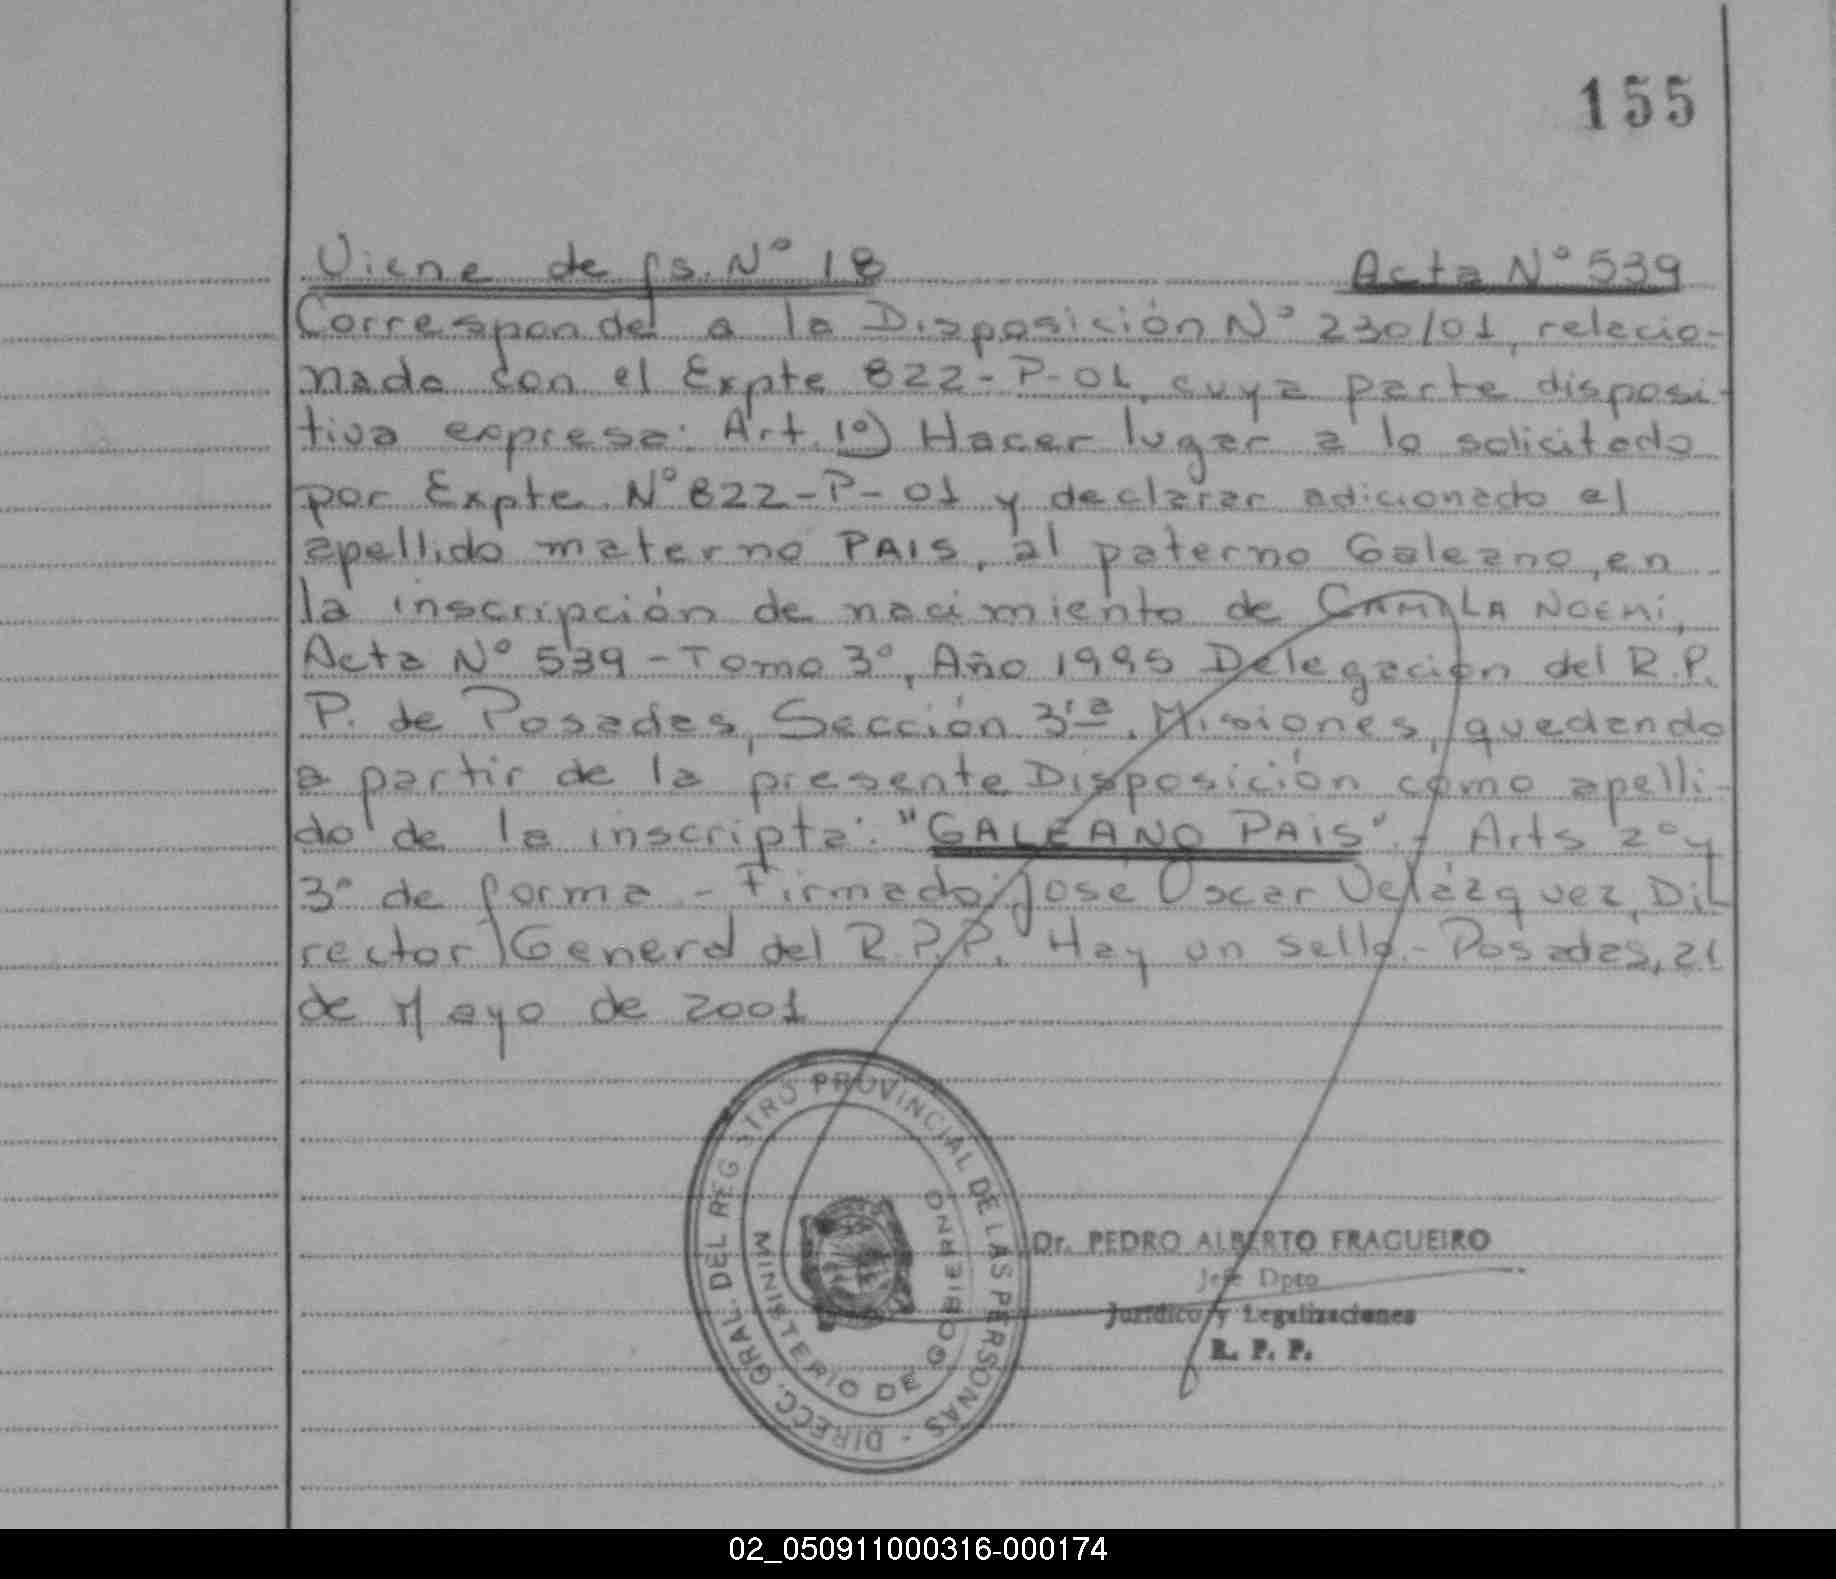 155
Viene de fs. Nº 18 Acta Nº 539
Corresponde a la Disposición Nº 230/01, relacio-
nada con el Expte 822-P-01, cuya parte disposi-
tiva expresa: Art. 1º) Hacer lugar a lo solicitado
por Expte. Nº 822-P-01 y declarar adicionado el
apellido materno PAIS, al paterno Galeano, en
la inscripción de nacimiento de CAMILA NOEMÍ,
Acta Nº 539 - Tomo 3º, Año 1995 Delegación del R.P.
P. de Posadas, Sección 3ra. Misiones, quedando
a partir de la presente Disposición como apelli-
do de la inscripta: "GALEANO PAIS".- Arts 2º y
3º de forma - Firmado: José Oscar Velázquez, Di-
rector General del R.P.P. Hay un sello.- Posadas, 21
de Mayo de 2001
DIRECC. GRAL. DEL REGISTRO PROVINCIAL DE LAS PERSONAS -
MINISTERIO DE GOBIERNO
Dr. PEDRO ALBERTO FRAGUEIRO
Jefe Dpto
Jurídico y Legalizaciones
R. P. P.
02_050911000316-000174